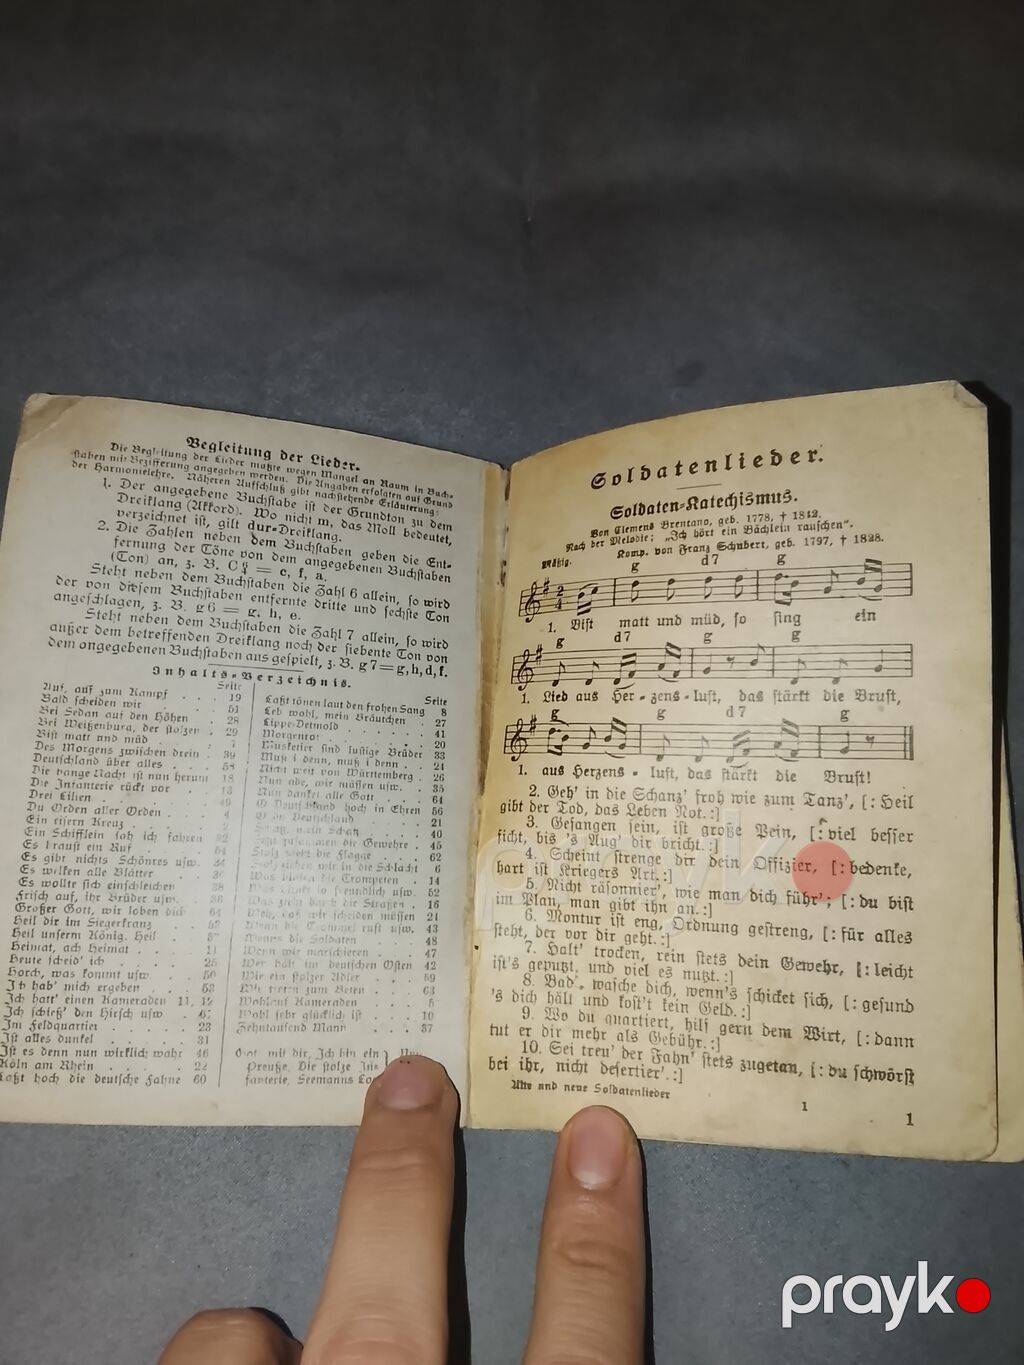 Begleitung der Lieder.
Die Begleitung der Lieder mußte wegen Mangel an Raum in Buch-
staben mit Bezifferung angegeben werden. Die Angaben erfolgten auf Grund
der Harmonielehre. Näheren Aufschluß gibt nachstehende Erläuterung:
1. Der angegebene Buchstabe ist der Grundton zu dem
Dreiklang (Akkord). Wo nicht m, das Moll bedeutet,
verzeichnet ist, gilt dur-Dreiklang.
2. Die Zahlen neben dem Buchstaben geben die Ent-
fernung der Töne von dem angegebenen Buchstaben
(Ton) an, z. B. C = c, f, a.
Steht neben dem Buchstaben die Zahl 6 allein, so wird
der von diesem Buchstaben entfernte dritte und sechste Ton
angeschlagen, z. B. g6 = g, h, e.
Steht neben dem Buchstaben die Zahl 7 allein, so wird
außer dem betreffenden Dreiklang noch der siebente Ton von
dem angegebenen Buchstaben aus gespielt, z. B. g7 = g, h, d, f.
Inhalts-Verzeichnis.
Seite
Auf, auf zum Kampf . . 19
Bald scheiden wir . . . 51
Bei Sedan auf den Höhen . 28
Bei Weißenburg, der stolzen . 29
Bist matt und müd . . . 1
Des Morgens zwischen drein . 39
Deutschland über alles . . 58
Die bange Nacht ist nun herum 18
Die Infanterie rückt vor . . 13
Drei Lilien . . . . 49
Du Orden aller Orden . . 4
Ein eisern Kreuz . . .
Ein Schifflein sah ich fahren 32
Es braust ein Ruf . . . 54
Es gibt nichts Schönres usw.
Es wilken alle Blätter . .
Es wollte sich einschleichen 38
Frisch auf, ihr Brüder usw. 36
Großer Gott, wir loben dich 64
Heil dir im Siegerkranz . .
Heil unserm König, Heil . 57
Heimat, ach Heimat . . 11
Heute scheid' ich . . . 25
Horch, was kommt usw. . 50
Ich hab' mich ergeben . . 53
Ich hatt' einen Kameraden 11, 12
Ich schieß' den Hirsch usw. 67
Im Feldquartier . . . 23
Ist alles dunkel . . . 31
Ist es denn nun wirklich wahr 46
Köln am Rhein . . . 22
Laßt hoch die deutsche Fahne 60
Seite
Laßt tönen laut den frohen Sang 8
Leb wohl, mein Bräutchen . 27
Lippe-Detmold . . . . 41
Morgenrot . . . . 20
Musketier sind lustige Brüder 33
Muß i denn, muß i denn . 24
Nicht weit von Württemberg . 26
Nun ade, wir müssen usw. . 35
Nun danket alle Gott . . 64
O Deutschland hoch in Ehren 56
O du Deutschland . . . 21
Schatz, mein Schatz . . . 40
Setzt zusammen die Gewehre . 45
Stolz weht die Flagge . . 62
Stolz ziehen wir in die Schlacht 6
Was blasen die Trompeten . 14
Was blinkt so freundlich usw. 52
Was zieht durch die Straßen . 16
Weh, daß wir scheiden müssen 21
Wenn die Trommel ruft usw. 43
Wenns die Soldaten . . 48
Wenn wir marschieren . . 47
Wer hält im deutschen Osten 42
Wie ein stolzer Adler . . 59
Wir treten zum Beten . . 63
Wohlauf Kameraden . . 5
Wohl sehr glücklich ist . . 10
Zehntausend Mann . . . 37
Gott mit dir, Ich bin ein
Preuße, Die stolze
fanterie, Seemanns
Soldatenlieder.
Soldaten-Katechismus.
Von Clemens Brentano, geb. 1778, † 1842.
Nach der Melodie: „Ich hört ein Bächlein rauschen".
Komp. von Franz Schubert, geb. 1797, † 1828.
Mäßig.
g d7 g
1. Bist matt und müd, so sing ein
g d7 g g
1. Lied aus Her-zens-lust, das stärkt die Brust,
g g d7 g
1. aus Herzens-lust, das stärkt die Brust!
2. Geh' in die Schanz' froh wie zum Tanz', [: Heil
gibt der Tod, das Leben Not. :]
3. Gefangen sein, ist große Pein, [: viel besser
ficht, bis 's Aug' dir bricht. :]
4. Scheint strenge dir dein Offizier, [: bedenke,
hart ist Kriegers Art. :]
5. Nicht räsonnier', wie man dich führ'; [: du bist
im Plan, man gibt ihn an. :]
6. Montur ist eng, Ordnung gestreng, [: für alles
steht, der vor dir geht. :]
7. Halt' trocken, rein stets dein Gewehr, [: leicht
ist's geputzt, und viel es nutzt. :]
8. Bad', wasche dich, wenn's schicket sich, [: gesund
's dich hält und kost't kein Geld. :]
9. Wo du quartiert, hilf gern dem Wirt, [: dann
tut er dir mehr als Gebühr. :]
10. Sei treu' der Fahn' stets zugetan, [: du schwörst
bei ihr, nicht desertier'. :]
Alte und neue Soldatenlieder
1
1
prayk
prayk